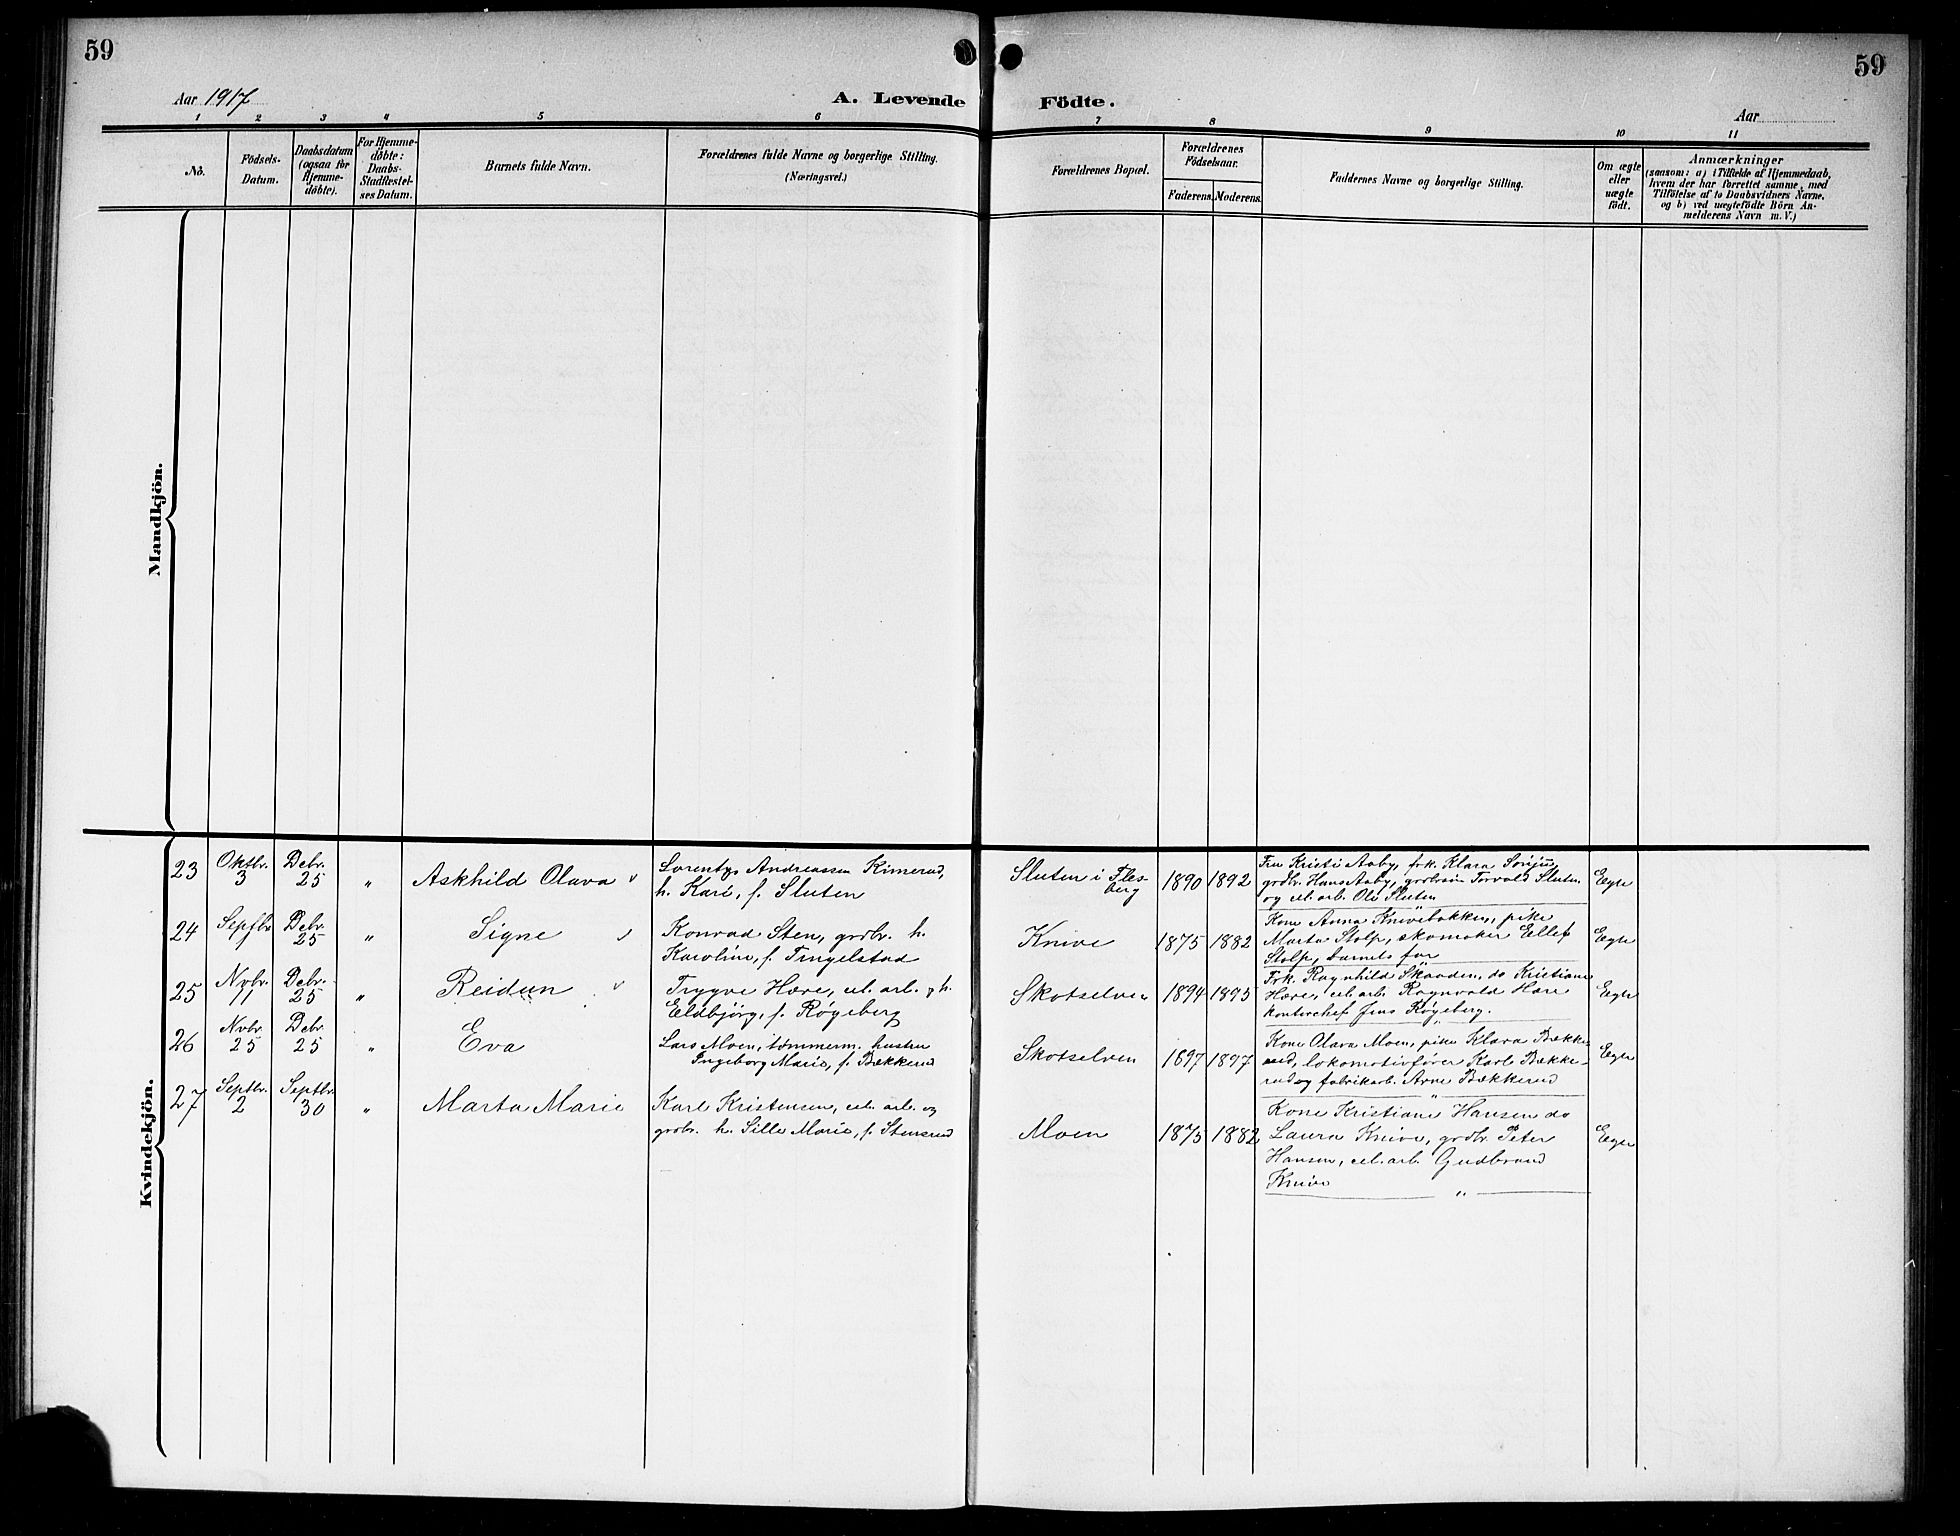 59
59
Aar 1917
A. Levende
Födte.
Aar
1 2 3 4 5 6 7 8 9 10 11
No.
Födsels-
Datum.
Daabsdatum
(ogsaa for
Hjemme-
döbte).
For Hjemme-
døbte:
Daabs-
Stadfæstel-
ses Datum.
Barnets fulde Navn.
Forældrenes fulde Navne og borgerlige Stilling.
(Næringsvei.)
Forældrenes Bopæl.
Forældrenes
Födselsaar.
Faderens. Moderens.
Faddernes Navne og borgerlige Stilling.
Om ægte
eller
uægte
födt.
Anmærkninger
(saasom: a) i Tilfælde af Hjemmedaab,
hvem der har forrettet samme, med
Tilföielse af to Daabsvidners Navne,
og b) ved uægtefödte Börn An-
melderens Navn m. V.)
Mandkjön.
Kvindekjön.
23 Oktbr. 3 Debr. 25 „ Askhild Olava
Lorentys Andreassen Kimerud,
h. Kari, f. Sluten
Sluten i Fles-
berg
1890 1892
Fru Kristi Aaby, frk. Klara
grdbr. Hans Aaby, grdbrsön Torvald Sluten
og cel. arb. Ole Sluten
Egte
24 Septbr. Debr. 25 „ Signe
Konrad Sten, grdbr. h.
Karoline, f. Tingelstad
Knive
1875 1882
Kone Anna Knivebakken, pike
Marta Stolp, skomaker Ellef
Stolp, barnets far
Egte
25 Nvbr. 11 Debr. 25 „ Reidun
Trygve Hære, cel. arb. h.
Eldbjörg, f. Røgeberg
Skotselven
1894 1895
Frk. Ragnhild Skaaden, do Kristiane
Hære, cel. arb. Ragnvald Hære
kontorchef Jens Røgeberg.
Egte
26 Nvbr. 25 Debr. 25 „ Eva
Lars Moen, tømmerm. hustru
Ingeborg Marie, f. Bækkerud
Skotselven
1897 1897
Kone Olava Moen, pike Klara Bække-
rud, lokomotivfører Karl Bække-
rud og fabrikarb. Arne Bækkerud
Egte
27 Septbr. 2 Septbr. 30 „ Marta Marie
Karl Kristensen, cel. arb. og
grdbr. h. Sille Marie, f. Stensrud
Moen
1875 1882
Kone Kristiane Hansen do
Laura Knive, grdbr. Peter
Hansen, cel. arb. Gudbrand
Knive
Egte